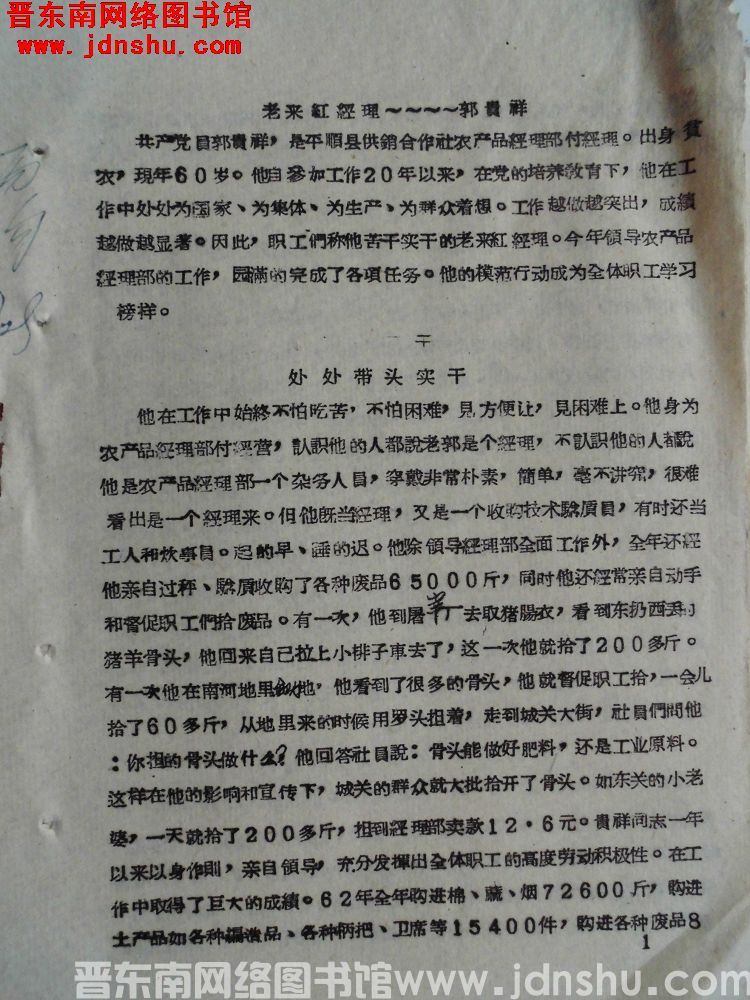 晋东南网络图书馆
www.jdnshu.com
老来紅經理～～～～郭貴祥
共产党員郭貴祥，是平順县供銷合作社农产品經理部付經理。出身貧
农，現年60岁。他自參加工作20年以来，在党的培养教育下，他在工
作中处处为国家、为集体、为生产、为群众着想。工作越做越突出，成績
越做越显著。因此，职工們称他苦干实干的老来紅經理。今年領导农产品
經理部的工作，园滿的完成了各項任务。他的模范行动成为全体职工学习
榜样。
一干
处处带头实干
他在工作中始終不怕吃苦，不怕困难，見方便让，見困难上。他身为
农产品經理部付經营，認識他的人都說老郭是个經理，不認識他的人都說
他是农产品經理部一个杂务人員，穿戴非常朴素，簡单，毫不讲究，很难
看出是一个經理来。但他既当經理，又是一个收购技术驗質員，有时还当
工人和炊事員。起的早、睡的迟。他除領导經理部全面工作外，全年还經
他亲自过秤、驗質收购了各种废品65000斤，同时他还經常亲自动手
和督促职工們拾废品。有一次，他到屠宰厂去取猪腸衣，看到东扔西丟的
猪羊骨头，他回来自己拉上小排子車去了，这一次他就拾了200多斤。
有一次他在南河地里地，他看到了很多的骨头，他就督促职工拾，一会儿
拾了60多斤，从地里来的时候用罗头担着，走到城关大街，社員們問他
：你担的骨头做什么？他回答社員說：骨头能做好肥料，还是工业原料。
这样在他的影响和宣传下，城关的群众就大批拾开了骨头。如东关的小老
婆，一天就拾了200多斤，担到經理部卖款12·6元。貴祥同志一年
以来以身作則，亲自領导，充分发揮出全体职工的高度劳动积极性。在工
作中取得了巨大的成績。62年全年购进棉、蔴、烟72600斤，购进
土产品如各种編造品、各种柄把、卫席等15400件，购进各种废品8
1
晋东南网络图书馆www.jdnshu.com